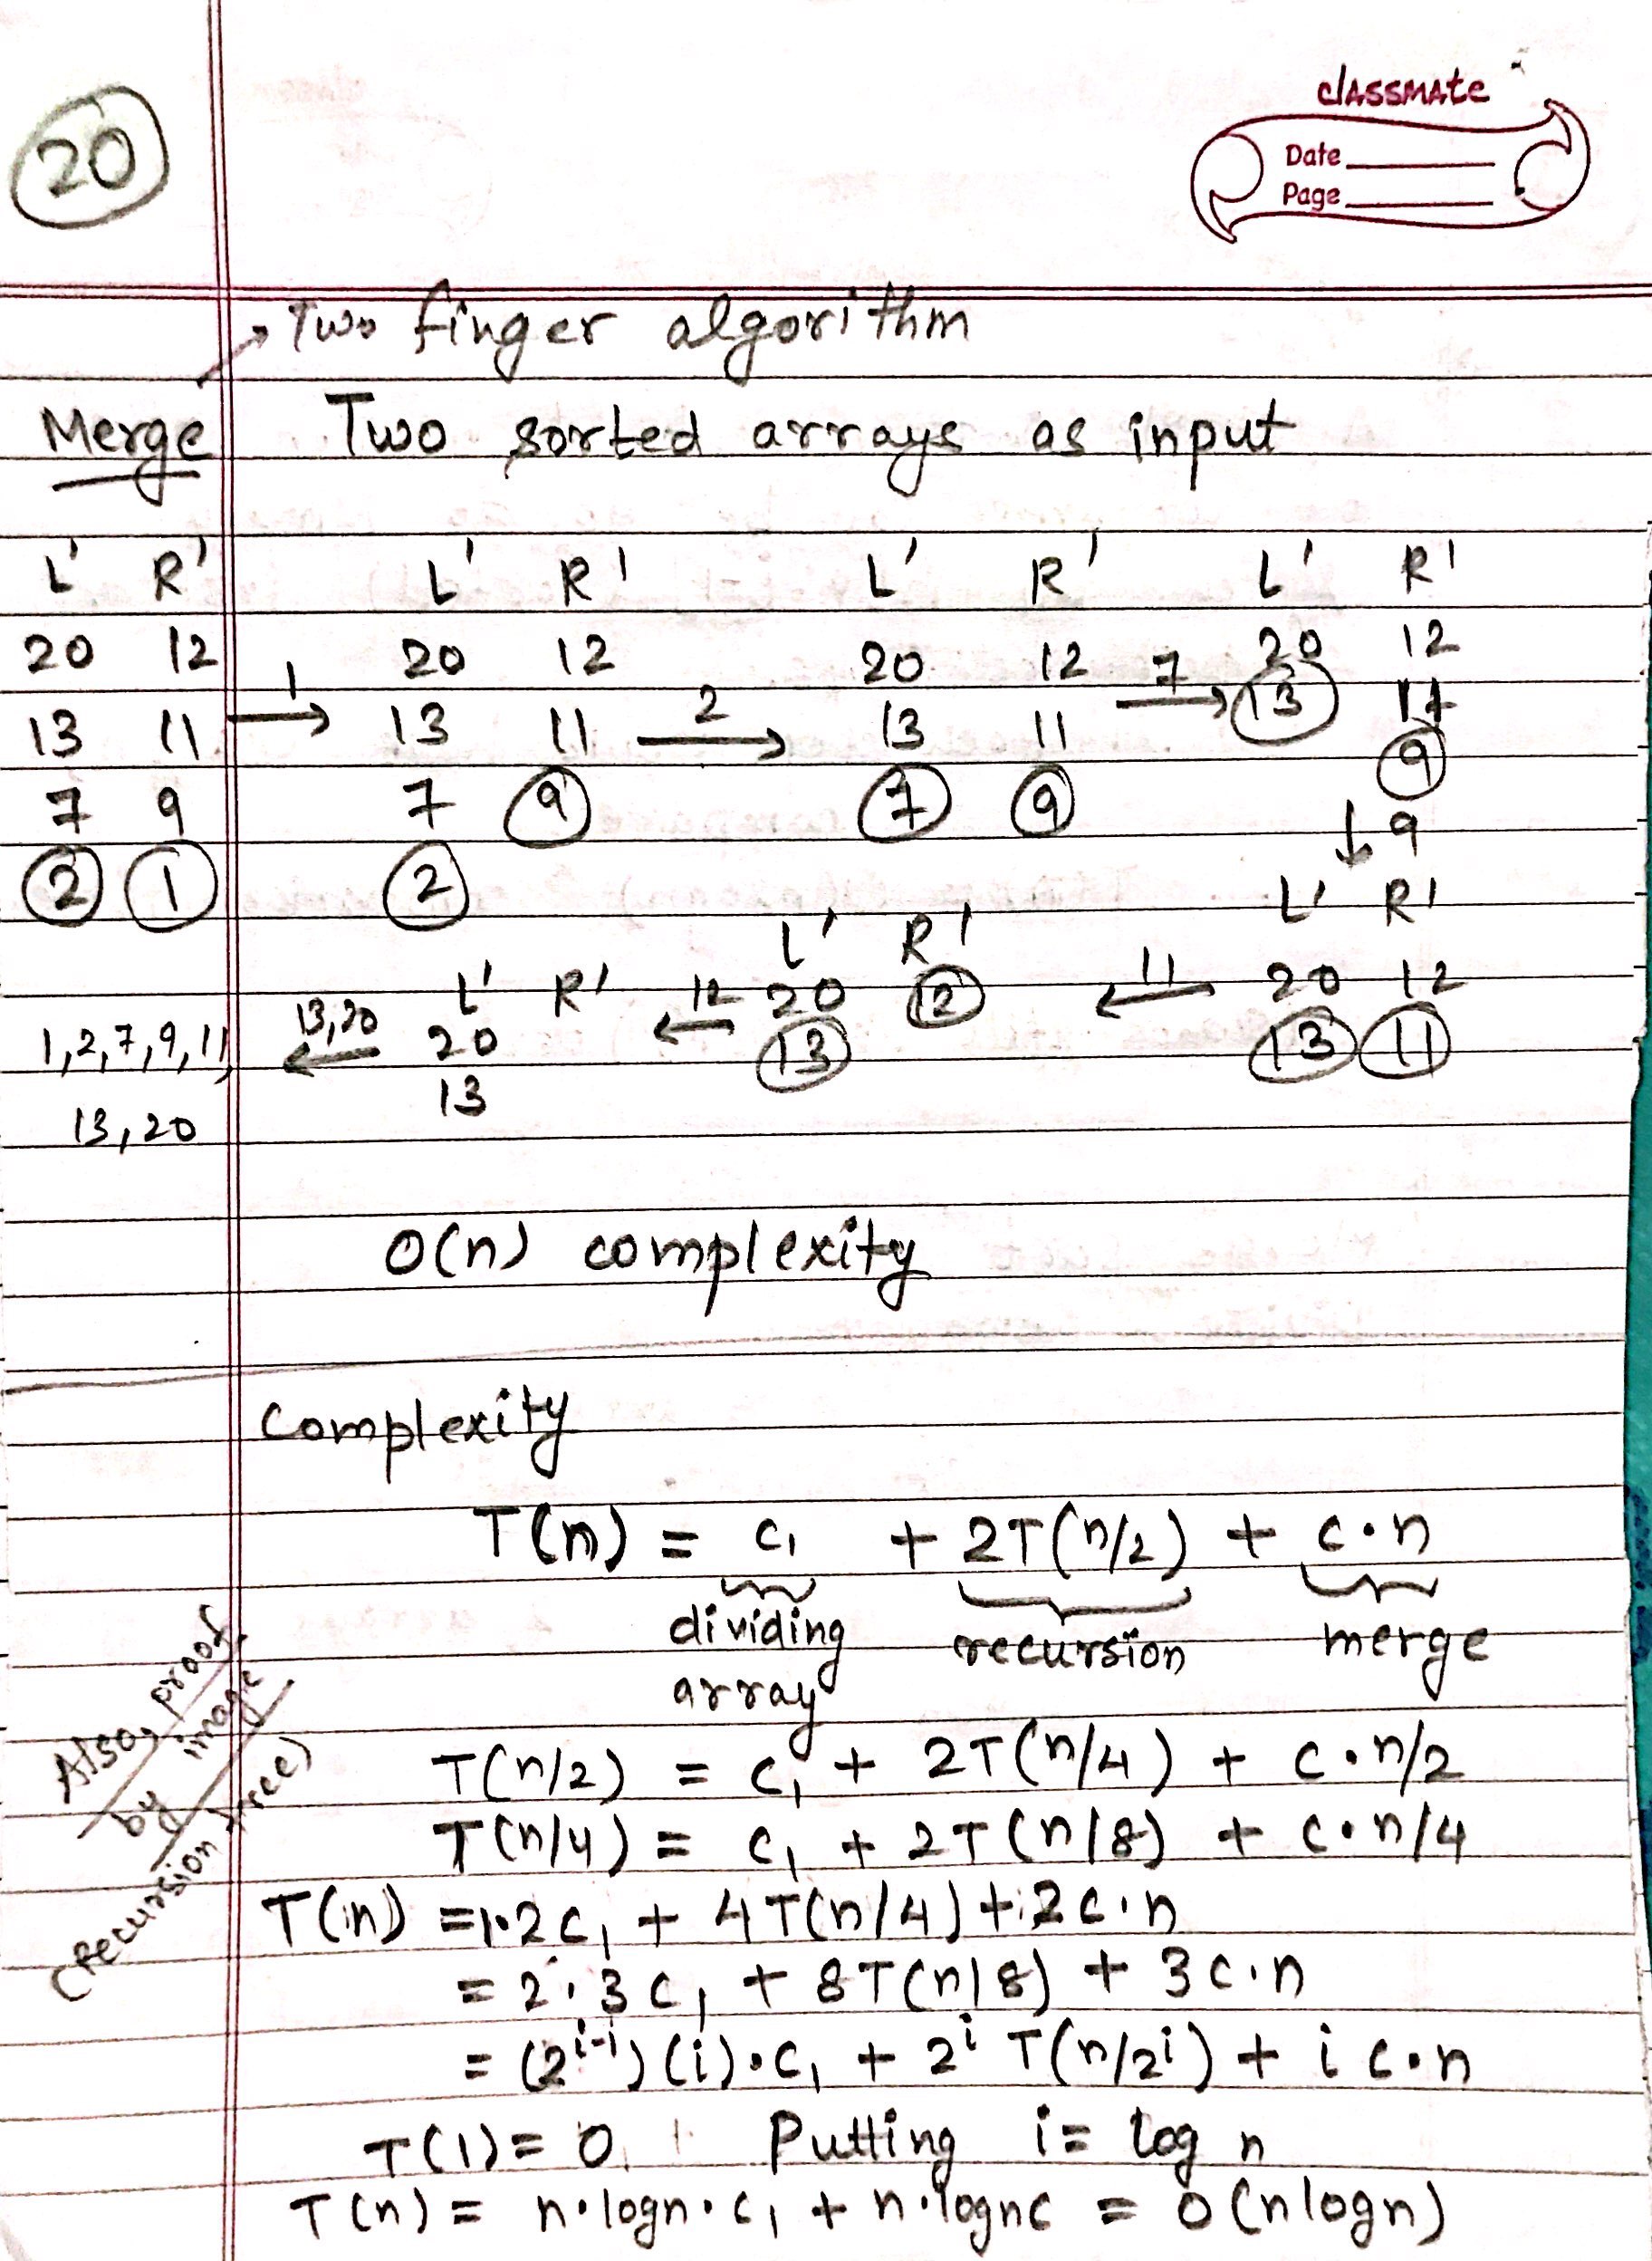 20
classmate
Date
Page
Two finger algorithm
Merge Two sorted arrays as input
L' R' L' R' L' R' L' R'
20 12 20 12 20 12 7 20 12
13 11 1 → 13 11 2 → 13 11 → 13 11
7 9 7 9 7 9 9
2 1 2 ↓ 9
L' R'
L' R'
L' R' 12 ← 20 12 11 ← 20 12
1,2,7,9,11, 13,20 ← 20 13 13 11
13
13,20
O(n) complexity
Complexity
T(n) = c₁ + 2T(n/2) + c·n
dividing recursion merge
array
Also, proof
by image
(recursion tree)
T(n/2) = c₁ + 2T(n/4) + c·n/2
T(n/4) = c₁ + 2T(n/8) + c·n/4
T(n) = 1·2c₁ + 4T(n/4) + 2c·n
= 2·3c₁ + 8T(n/8) + 3c·n
= (2ⁱ⁻¹)(i)·c₁ + 2ⁱ T(n/2ⁱ) + i c·n
T(1) = 0, Putting i = log n
T(n) = n·logn·c₁ + n·lognc = O(nlogn)